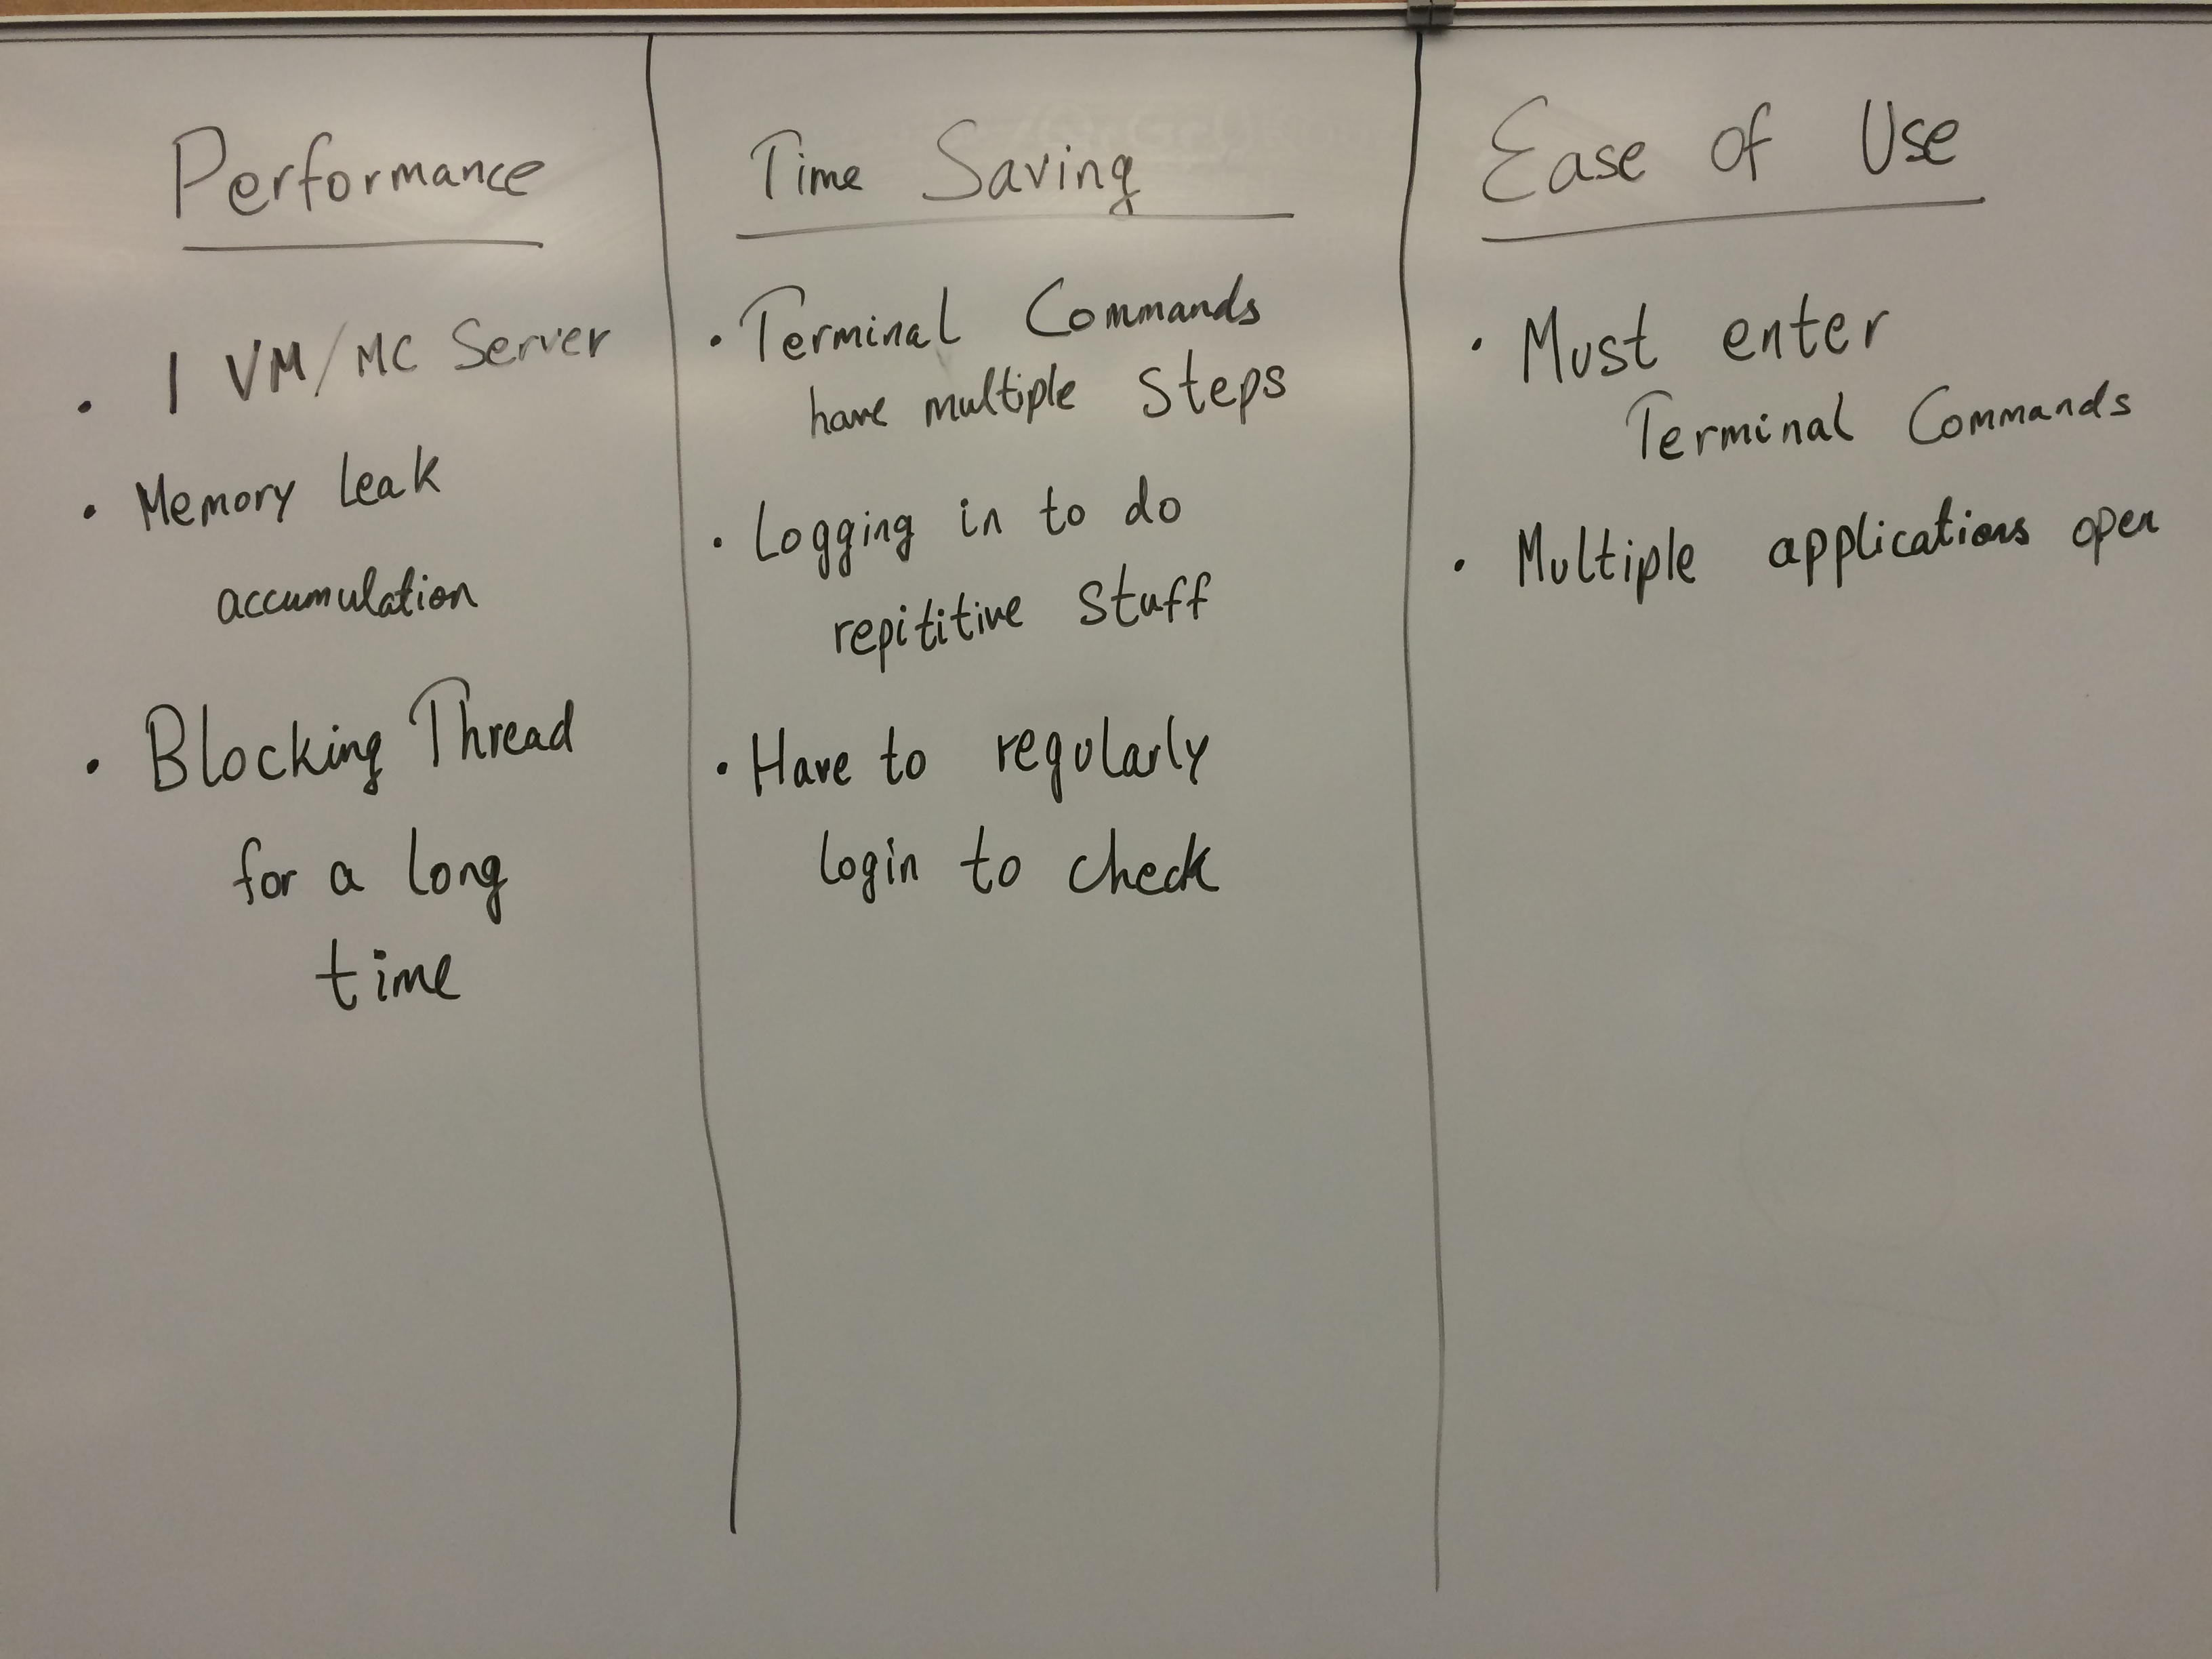 Performance
• 1 VM/MC Server
• Memory Leak
accumulation
• Blocking Thread
for a long
time
Time Saving
• Terminal Commands
have multiple steps
• Logging in to do
repititive stuff
• Have to regularly
login to check
Ease of Use
• Must enter
Terminal Commands
• Multiple applications open